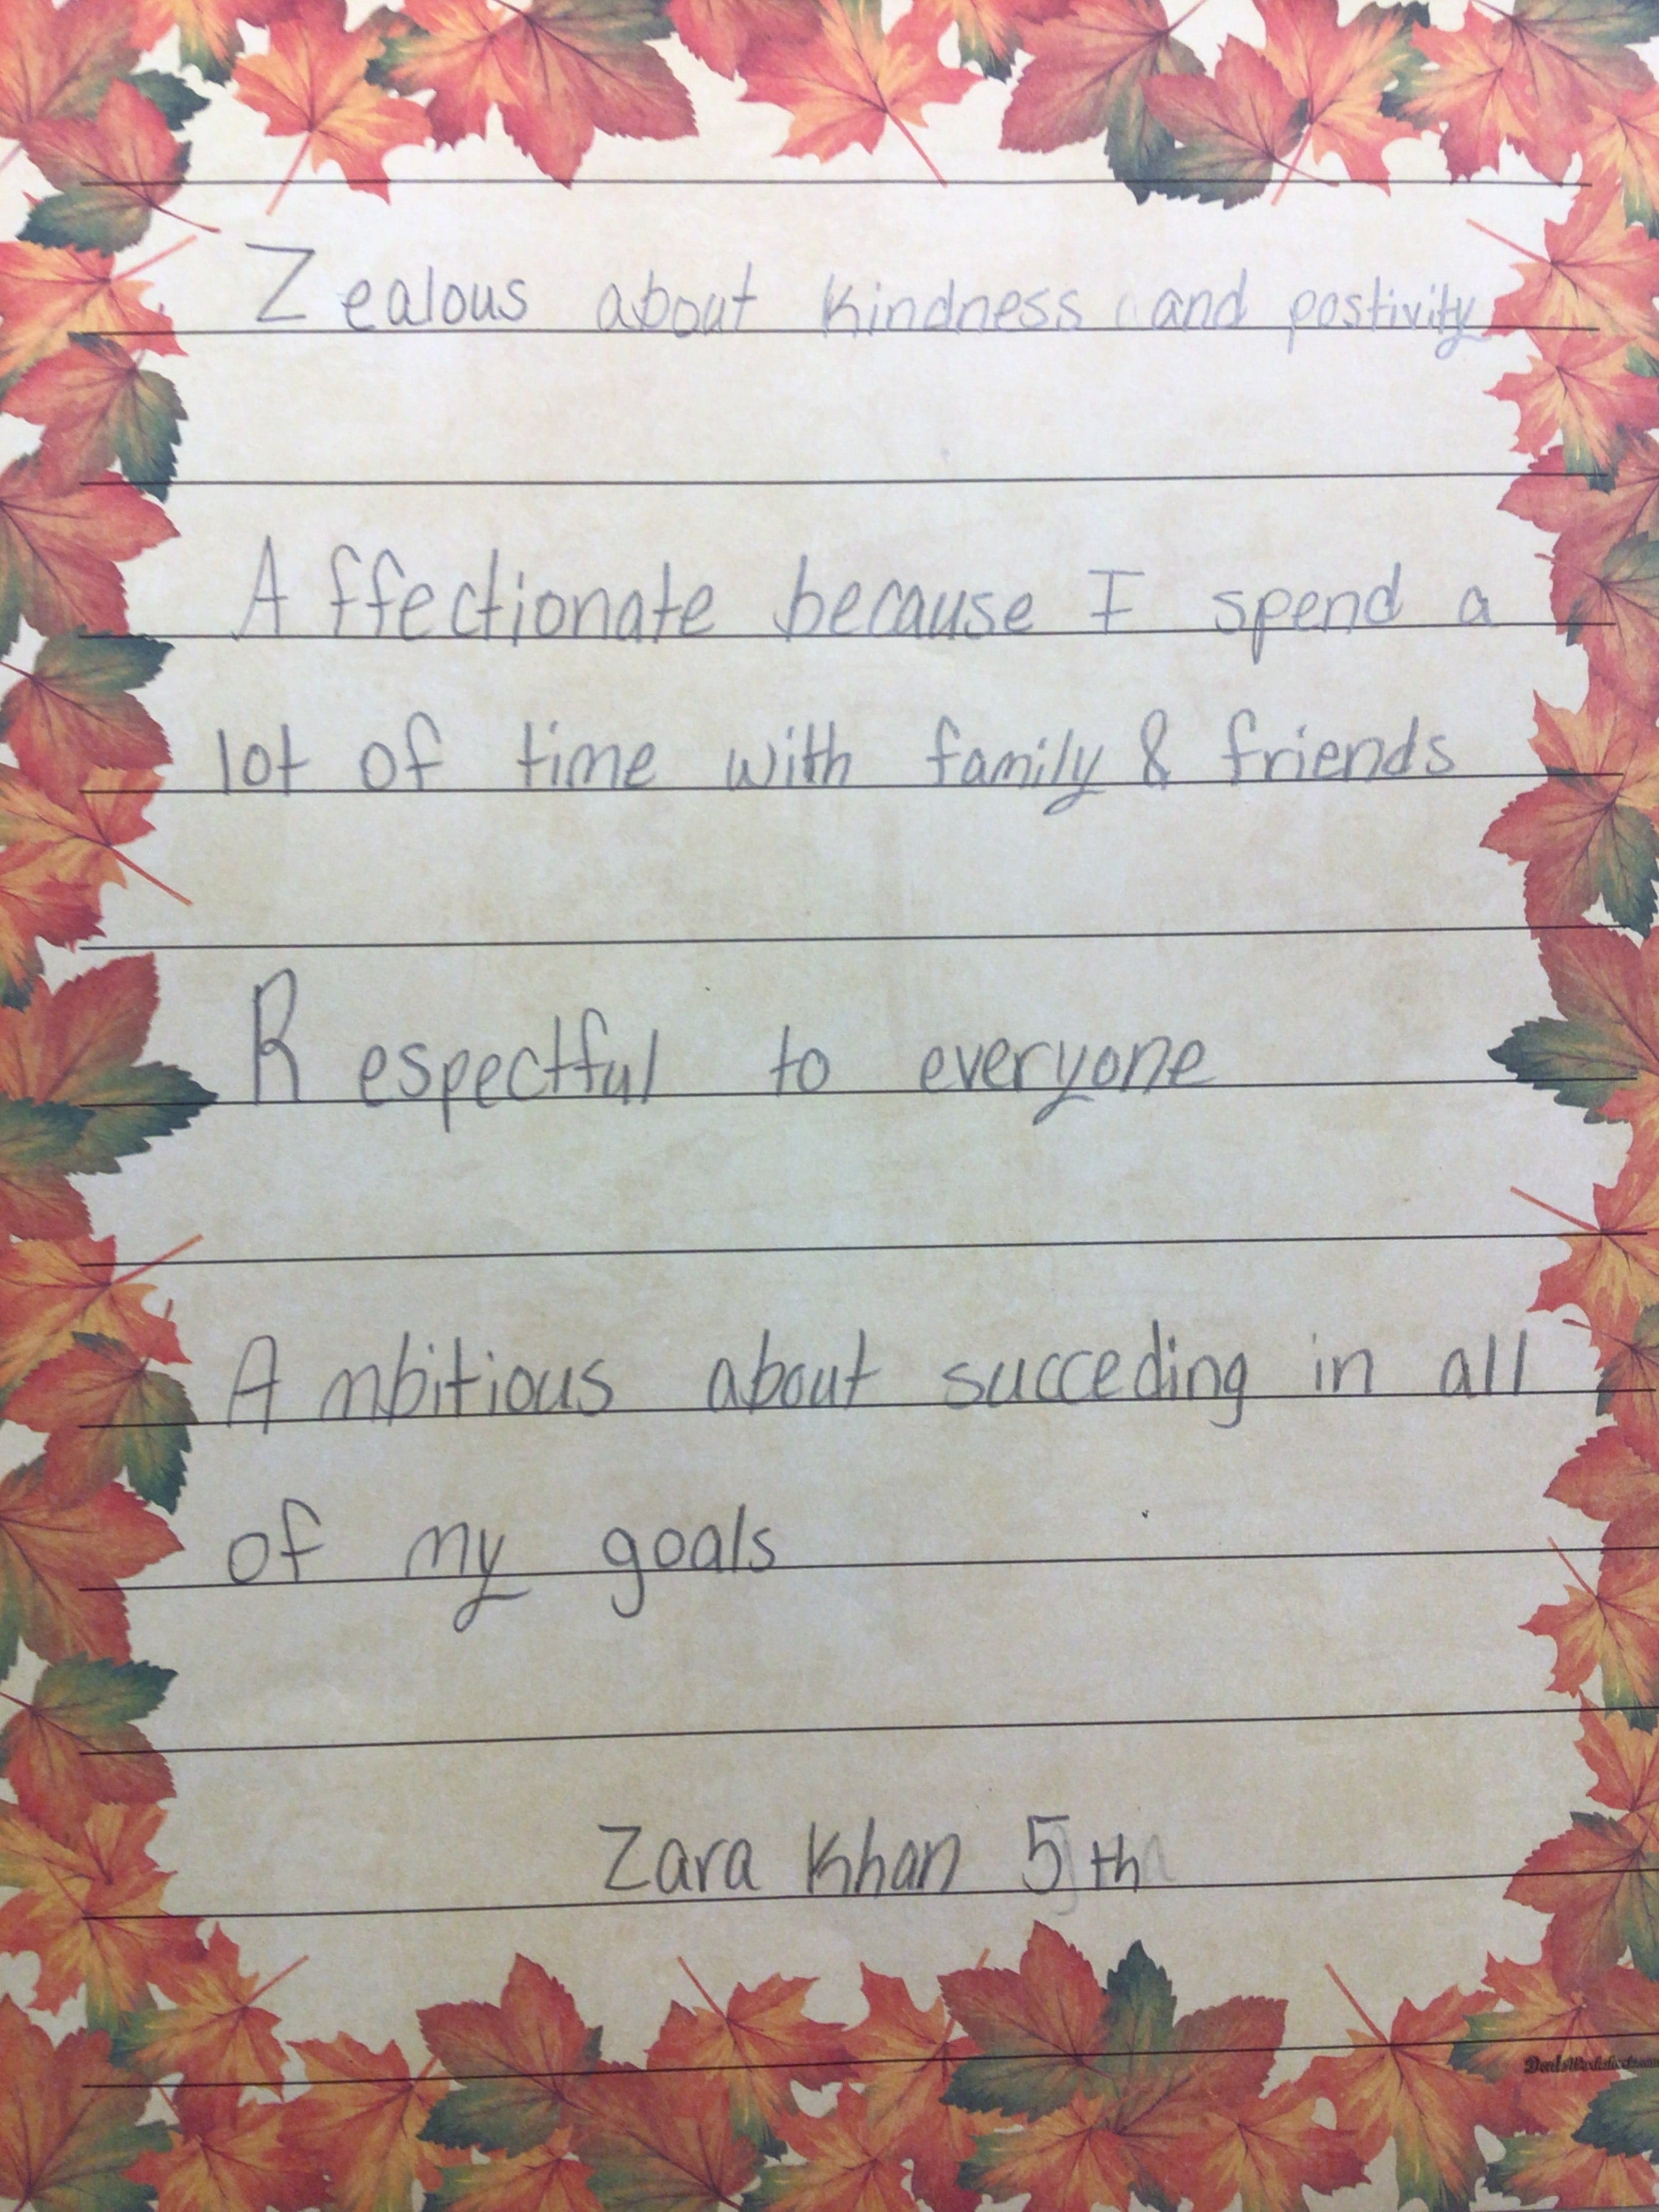 Zealous about kindness and postivity
Affectionate because I spend a
lot of time with family & friends
Respectful to everyone
Ambitious about succeding in all
of my goals
Zara Khan 5th